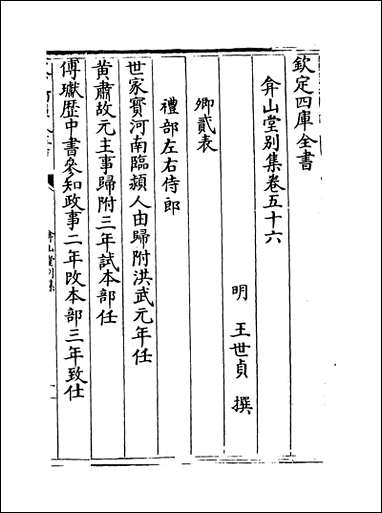 欽定四庫全書
弇山堂別集卷五十六
明 王世貞 撰
卿貳表
禮部左右侍郎
世家寶河南臨潁人由歸附洪武元年任
黃肅故元主事歸附三年試本部任
傅瓛歷中書參知政事二年改本部三年致仕
弇山堂別集